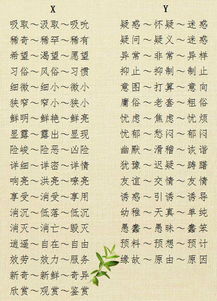 X Y
吸取～汲取～吸吮 疑惑～怀疑～迷惑
稀奇～稀有～稀罕 疑问～疑义～
希望～渴望～愿望 异常～非常～异样
习俗～风俗～习惯 抑止～抑制～制止
细微～细小～微小 意图～打算～意向
狭窄～窄小～狭小 庸俗～老套～粗俗
鲜明～鲜艳～鲜亮 忧虑～焦虑～
显露～露出～显现 忧郁～愁闷～郁闷
险峻～险恶～凶险 幽默～滑稽～诙谐
详细～详密～详情 犹豫～迟疑～踌躇
响亮～洪亮～嘹亮 友谊～交情～友情
享受～消受～享用 诱惑～引诱～诱导
消沉～低落～低沉 幼稚～天真～单纯
消灭～消亡～毁灭 愚蠢～愚昧～蠢笨
逍遥～自在～自由 预料～预想～预计
效劳～效力～服务 缘故～原由～原因
新奇～新鲜～奇异
欣赏～观赏～鉴赏